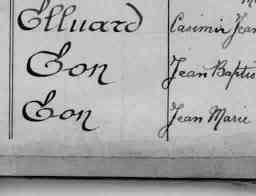 Elluard Casimir Jean
Eon Jean Baptis
Eon Jean Marie